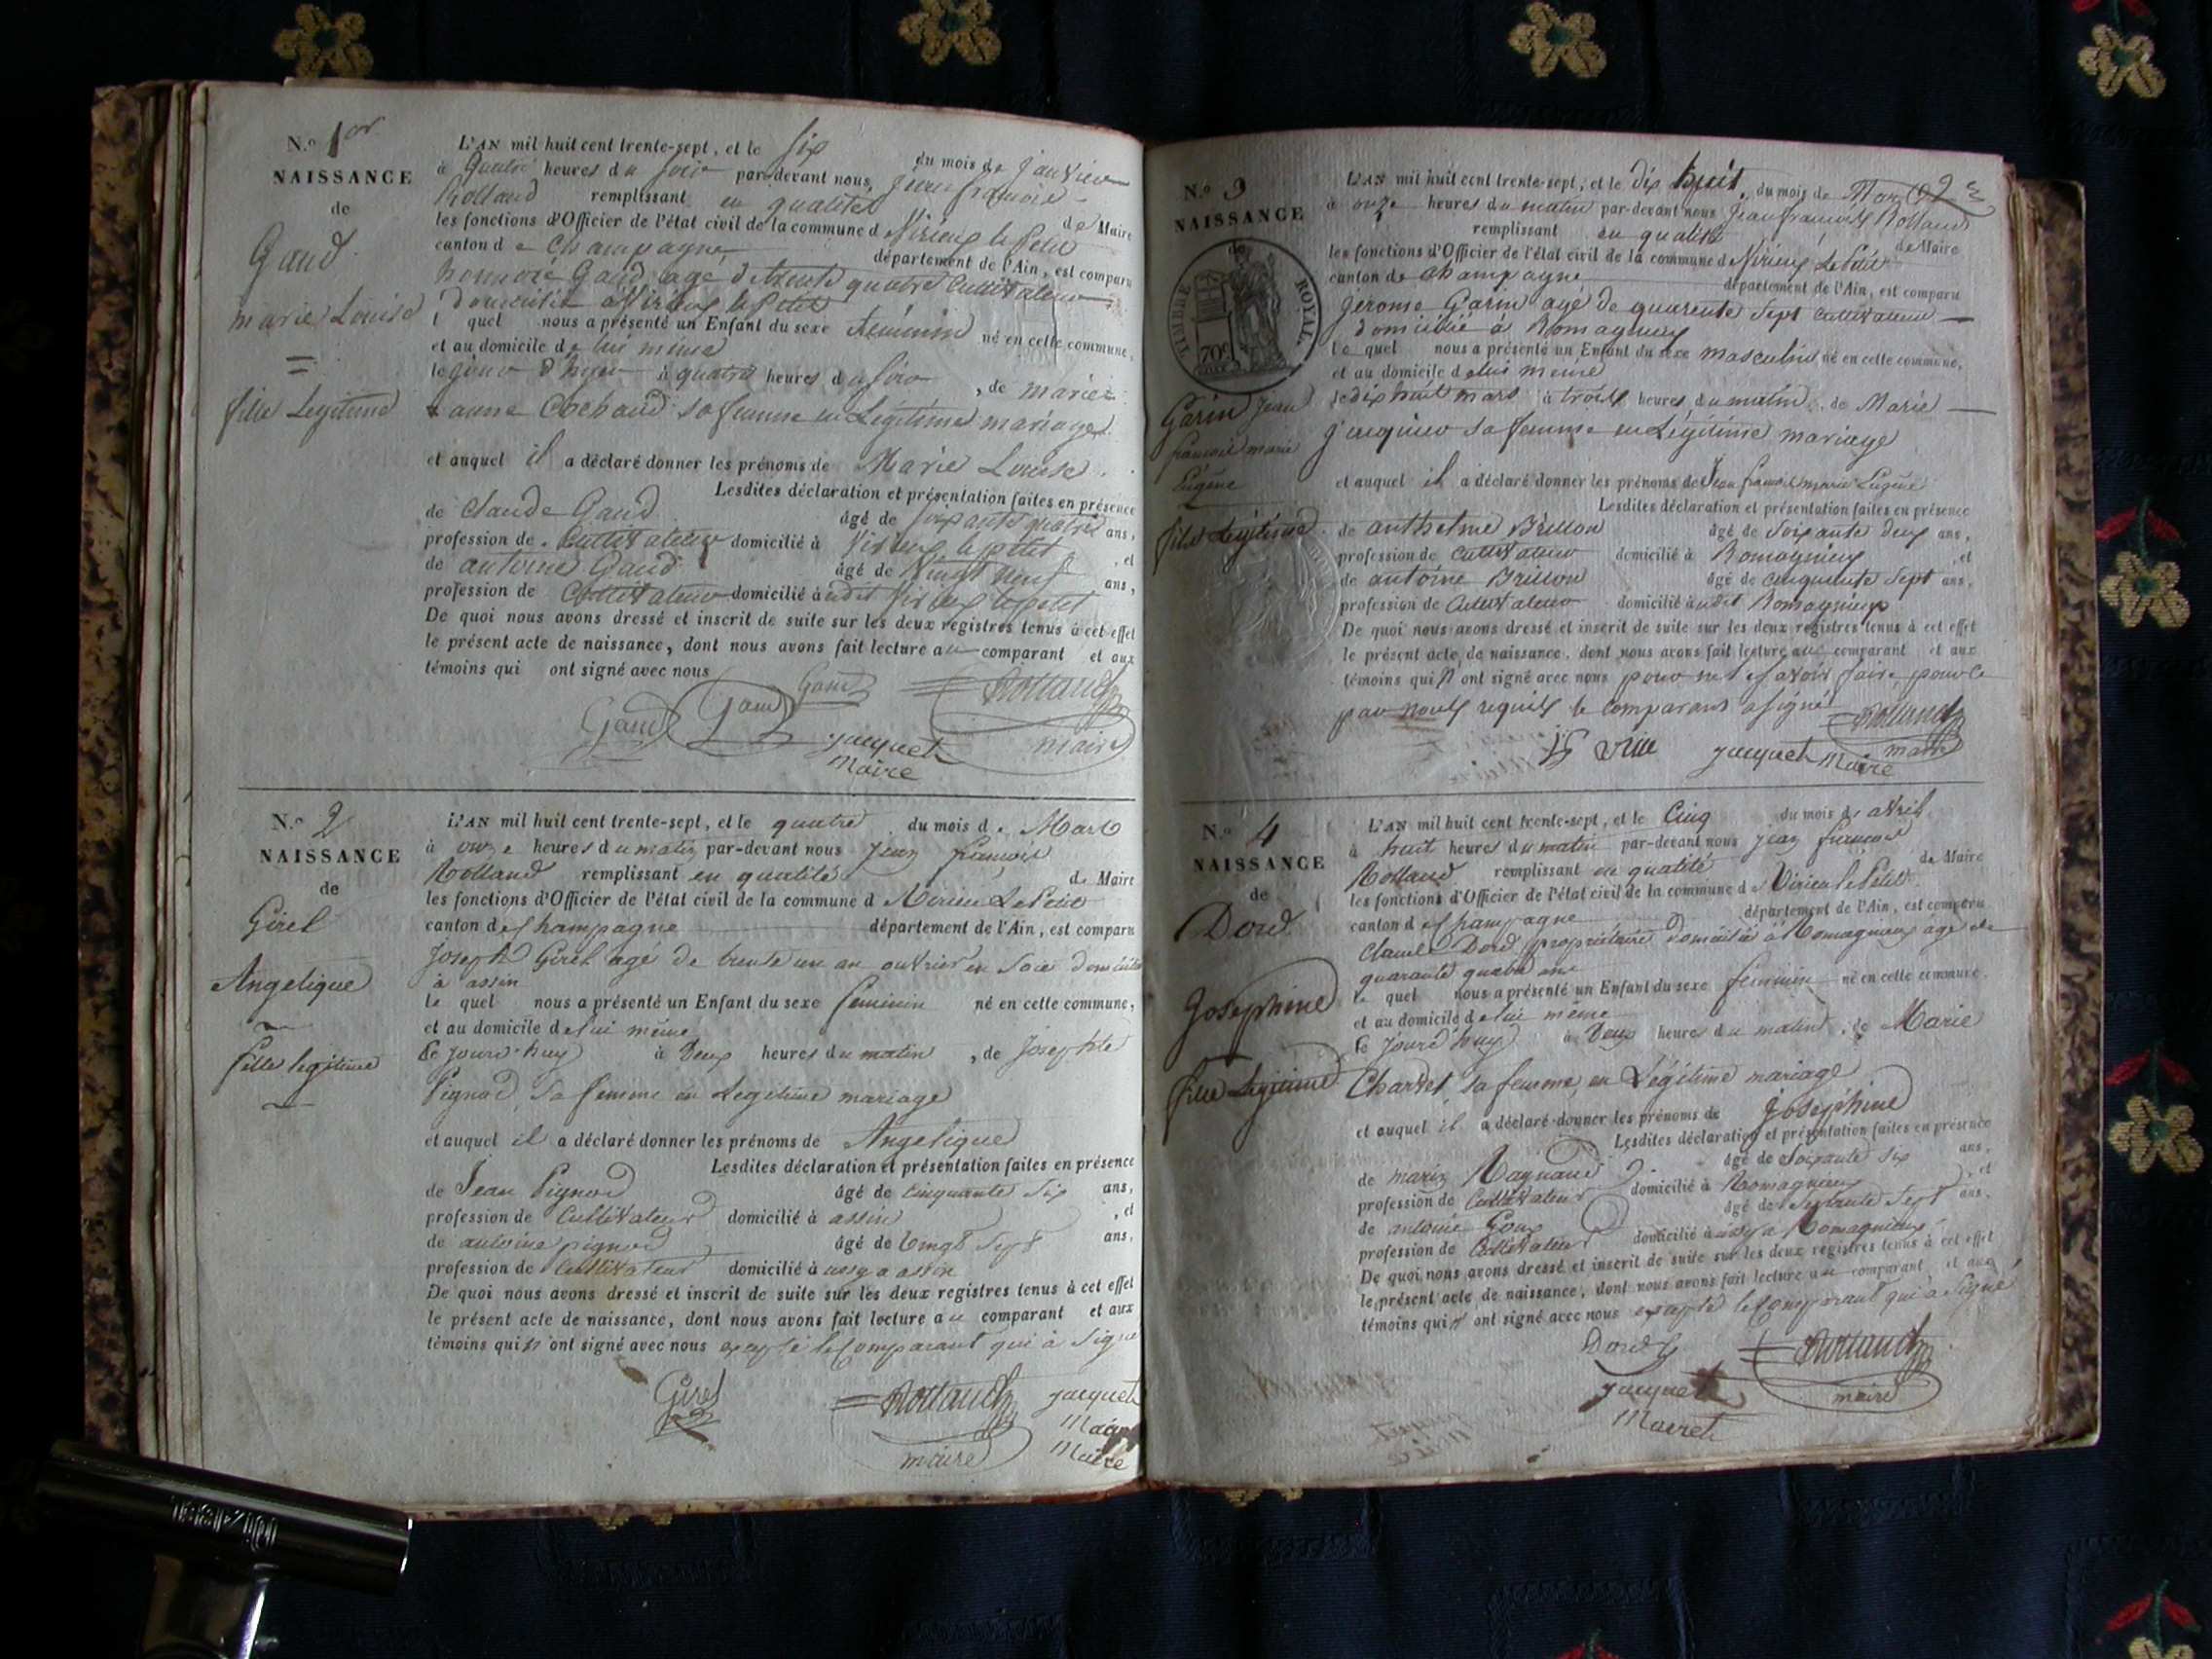 N.o 1er
NAISSANCE
de
Gaud
marie Louise
fille Legitime
L'AN mil huit cent trente-sept, et le six du mois de janvier
à quatre heures du soir par-devant nous, jean françois
Rolland remplissant en qualité de Maire
les fonctions d'Officier de l'état civil de la commune d Virieux le Petit
canton de Champagne département de l'Ain, est comparu
honnoré Gaud agé de trente quatre Cultivateur
domicilié a Virieux le Petit
l quel nous a présenté un Enfant du sexe féminin né en cette commune,
et au domicile de lui même
le jour d'hyer à quatre heures du soir, de marie
anne Cochaud sa femme en Légitime mariage
et auquel il a déclaré donner les prénoms de Marie Louise
Lesdites déclaration et présentation faites en présence
de Claude Gaud âgé de soixante quatre ans,
profession de Cultivateur domicilié à Virieux le petit, et
de antoine Gaud âgé de Vingt neuf ans,
profession de Cultivateur domicilié à udit Virieux le petit
De quoi nous avons dressé et inscrit de suite sur les deux registres tenus à cet effet
le présent acte de naissance, dont nous avons fait lecture au comparant et aux
témoins qui ont signé avec nous
Gaud Gaud Gaud Rolland
jacquet maire
Maire
N.o 2
NAISSANCE
de
Girel
Angelique
fille legitime
L'AN mil huit cent trente-sept, et le quatre du mois de Mars
à onze heures du matin par-devant nous jean françois
Rolland remplissant en qualité de Maire
les fonctions d'Officier de l'état civil de la commune d Virieu Le Petit
canton de Champagne département de l'Ain, est comparu
Joseph Girel agé de trente un an ouvrier en soie domicilié
à assin
le quel nous a présenté un Enfant du sexe feminin né en cette commune,
et au domicile de lui même
le jourd'huy à deux heures du matin, de Josephte
Pignod sa femme en Legitime mariage
et auquel il a déclaré donner les prénoms de Angelique
Lesdites déclaration et présentation faites en présence
de Jean Pignod âgé de cinquante six ans,
profession de Cultivateur domicilié à assin, et
de antoine pignod âgé de vingt sept ans,
profession de Cultivateur domicilié à ussy a assin
De quoi nous avons dressé et inscrit de suite sur les deux registres tenus à cet effet
le présent acte de naissance, dont nous avons fait lecture au comparant et aux
témoins qui n ont signé avec nous excepté le comparant qui à signé
Girel Rolland jacquet
maire Maire
Maire
N.o 3
NAISSANCE
de
TIMBRE ROYAL
70c
Garin Jean
francois marie
Eugene
fils Légitime
L'AN mil huit cent trente-sept, et le dix huit, du mois de Mars
à onze heures du matin par-devant nous Jean françois Rolland
remplissant en qualité de Maire
les fonctions d'Officier de l'état civil de la commune d Virieux Le Petit
canton de Champagne département de l'Ain, est comparu
Jerome Garin agé de quarente sept Cultivateur
domicilié à Romagnieux
le quel nous a présenté un Enfant du sexe masculin né en cette commune,
et au domicile de lui meme
le dix huit mars à trois heures du matin, de Marie
jacquier sa femme en Légitime mariage
et auquel il a déclaré donner les prénoms de Jean francois marie Eugene
Lesdites déclaration et présentation faites en présence
de anthelme Brillon âgé de soixante deux ans,
profession de cultivateur domicilié à Romagnieux, et
de antoine Brillon âgé de cinquante sept ans,
profession de Cultivateur domicilié à udit Romagnieux
De quoi nous avons dressé et inscrit de suite sur les deux registres tenus à cet effet
le présent acte de naissance, dont nous avons fait lecture au comparant et aux
témoins qui n ont signé avec nous pour ne le savoir faire, pour ce
par nous requis le comparant a signé
Rolland
jacquet maire
Maire
N.o 4
NAISSANCE
de
Dord
Josephine
fille Legitime
L'AN mil huit cent trente-sept, et le Cinq du mois de avril
à huit heures du matin par-devant nous jean francois
Rolland remplissant en qualité de Maire
les fonctions d'Officier de l'état civil de la commune de Virieu le Petit
canton de Champagne département de l'Ain, est comparu
Claude Dord propriétaire domicilié à Romagnieux âgé de
quarante quatre ans
le quel nous a présenté un Enfant du sexe feminin né en cette commune,
et au domicile de lui même
le jourd'huy à deux heures du matin, de Marie
Charvet sa femme en Légitime mariage
et auquel il a déclaré donner les prénoms de Joséphine
Lesdites déclaration et présentation faites en présence
de marin Raynaud âgé de soixante six ans,
profession de Cultivateur domicilié à Romagnieux, et
de antoine Goux âgé de septante sept ans,
profession de Cultivateur domicilié à ussy a Romagnieux
De quoi nous avons dressé et inscrit de suite sur les deux registres tenus à cet effet
le présent acte de naissance, dont nous avons fait lecture au comparant et aux
témoins qui n ont signé avec nous excepté le comparant qui a signé
Dord Rolland
jacquet maire
Maire